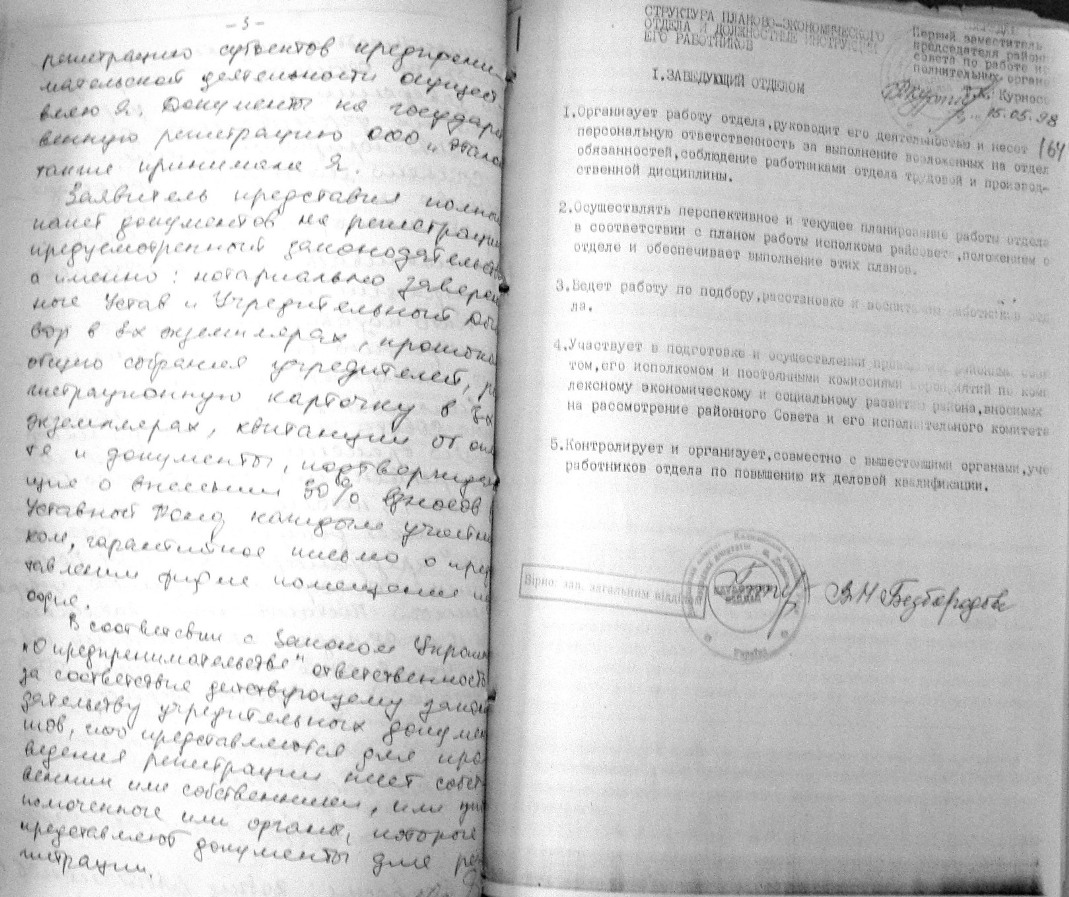 - 3 -
регистрацию субъектов предприни-
мательской деятельности осущест-
вляю я. Документы на государст
венную регистрацию ООО
также принимала я.
Заявитель представил полный
пакет документов на регистрацию
предусмотренный законодательством
а именно: нотариально заверен
ные Устав и Учредительный дого
вор в 3х экземплярах, протокол
общего собрания учредителей, ре
гистрационную карточку в
экземплярах, квитанции об опла
те и документы, подтверждаю
щие о внесении 50% взносов
Уставный Фонд каждым участни
ком, гарантийное письмо о пред
тавлении фирме помещения
офис.
В соответсвии с Законом Украины
"О предпринимательстве" ответственность
за соответствие действующему закон
дательству учредительных докумен
тов, что представляются для про
ведения регистрации несет собст
венник или собственники, или упо
номоченные или органы, которые
представляют документы для рег
истрации.
СТРУКТУРА ПЛАНОВО-ЭКОНОМИЧЕСКОГО
ОТДЕЛА И ДОЛЖНОСТНЫЕ ИНСТРУКЦИИ
ЕГО РАБОТНИКОВ
Первый заместитель
председателя район
совета по работе ис
полнительных органов
Т.К. Курнос
15.05.98
I.ЗАВЕДУЮЩИЙ ОТДЕЛОМ
164
1.Организует работу отдела,руководит его деятельностью и несет
персональную ответственность за выполнение возложенных на отдел
обязанностей,соблюдение работниками отдела трудовой и производ-
ственной дисциплины.
2.Осуществлять перспективное и текущее планирование работы отдела
в соответствии с планом работы исполкома райсовета,положением о
отделе и обеспечивает выполнение этих планов.
3.Ведет работу по подбору,расстановке и воспитанию работников отд
ла.
4.Участвует в подготовке и осуществлении районным
том,его исполкомом и постоянными комиссиями мероприятий по комп
лексному экономическому и социальному развитию района,вносимых
на рассмотрение районного Совета и его исполнительного комитета
5.Контролирует и организует,совместно с вышестоящими органами,уче
работников отдела по повышению их деловой квалификации.
Вірно: зав. загальним відділ
ЗАГАЛЬНИЙ
ВІДДІЛ
Україна
В.Н Безбородова